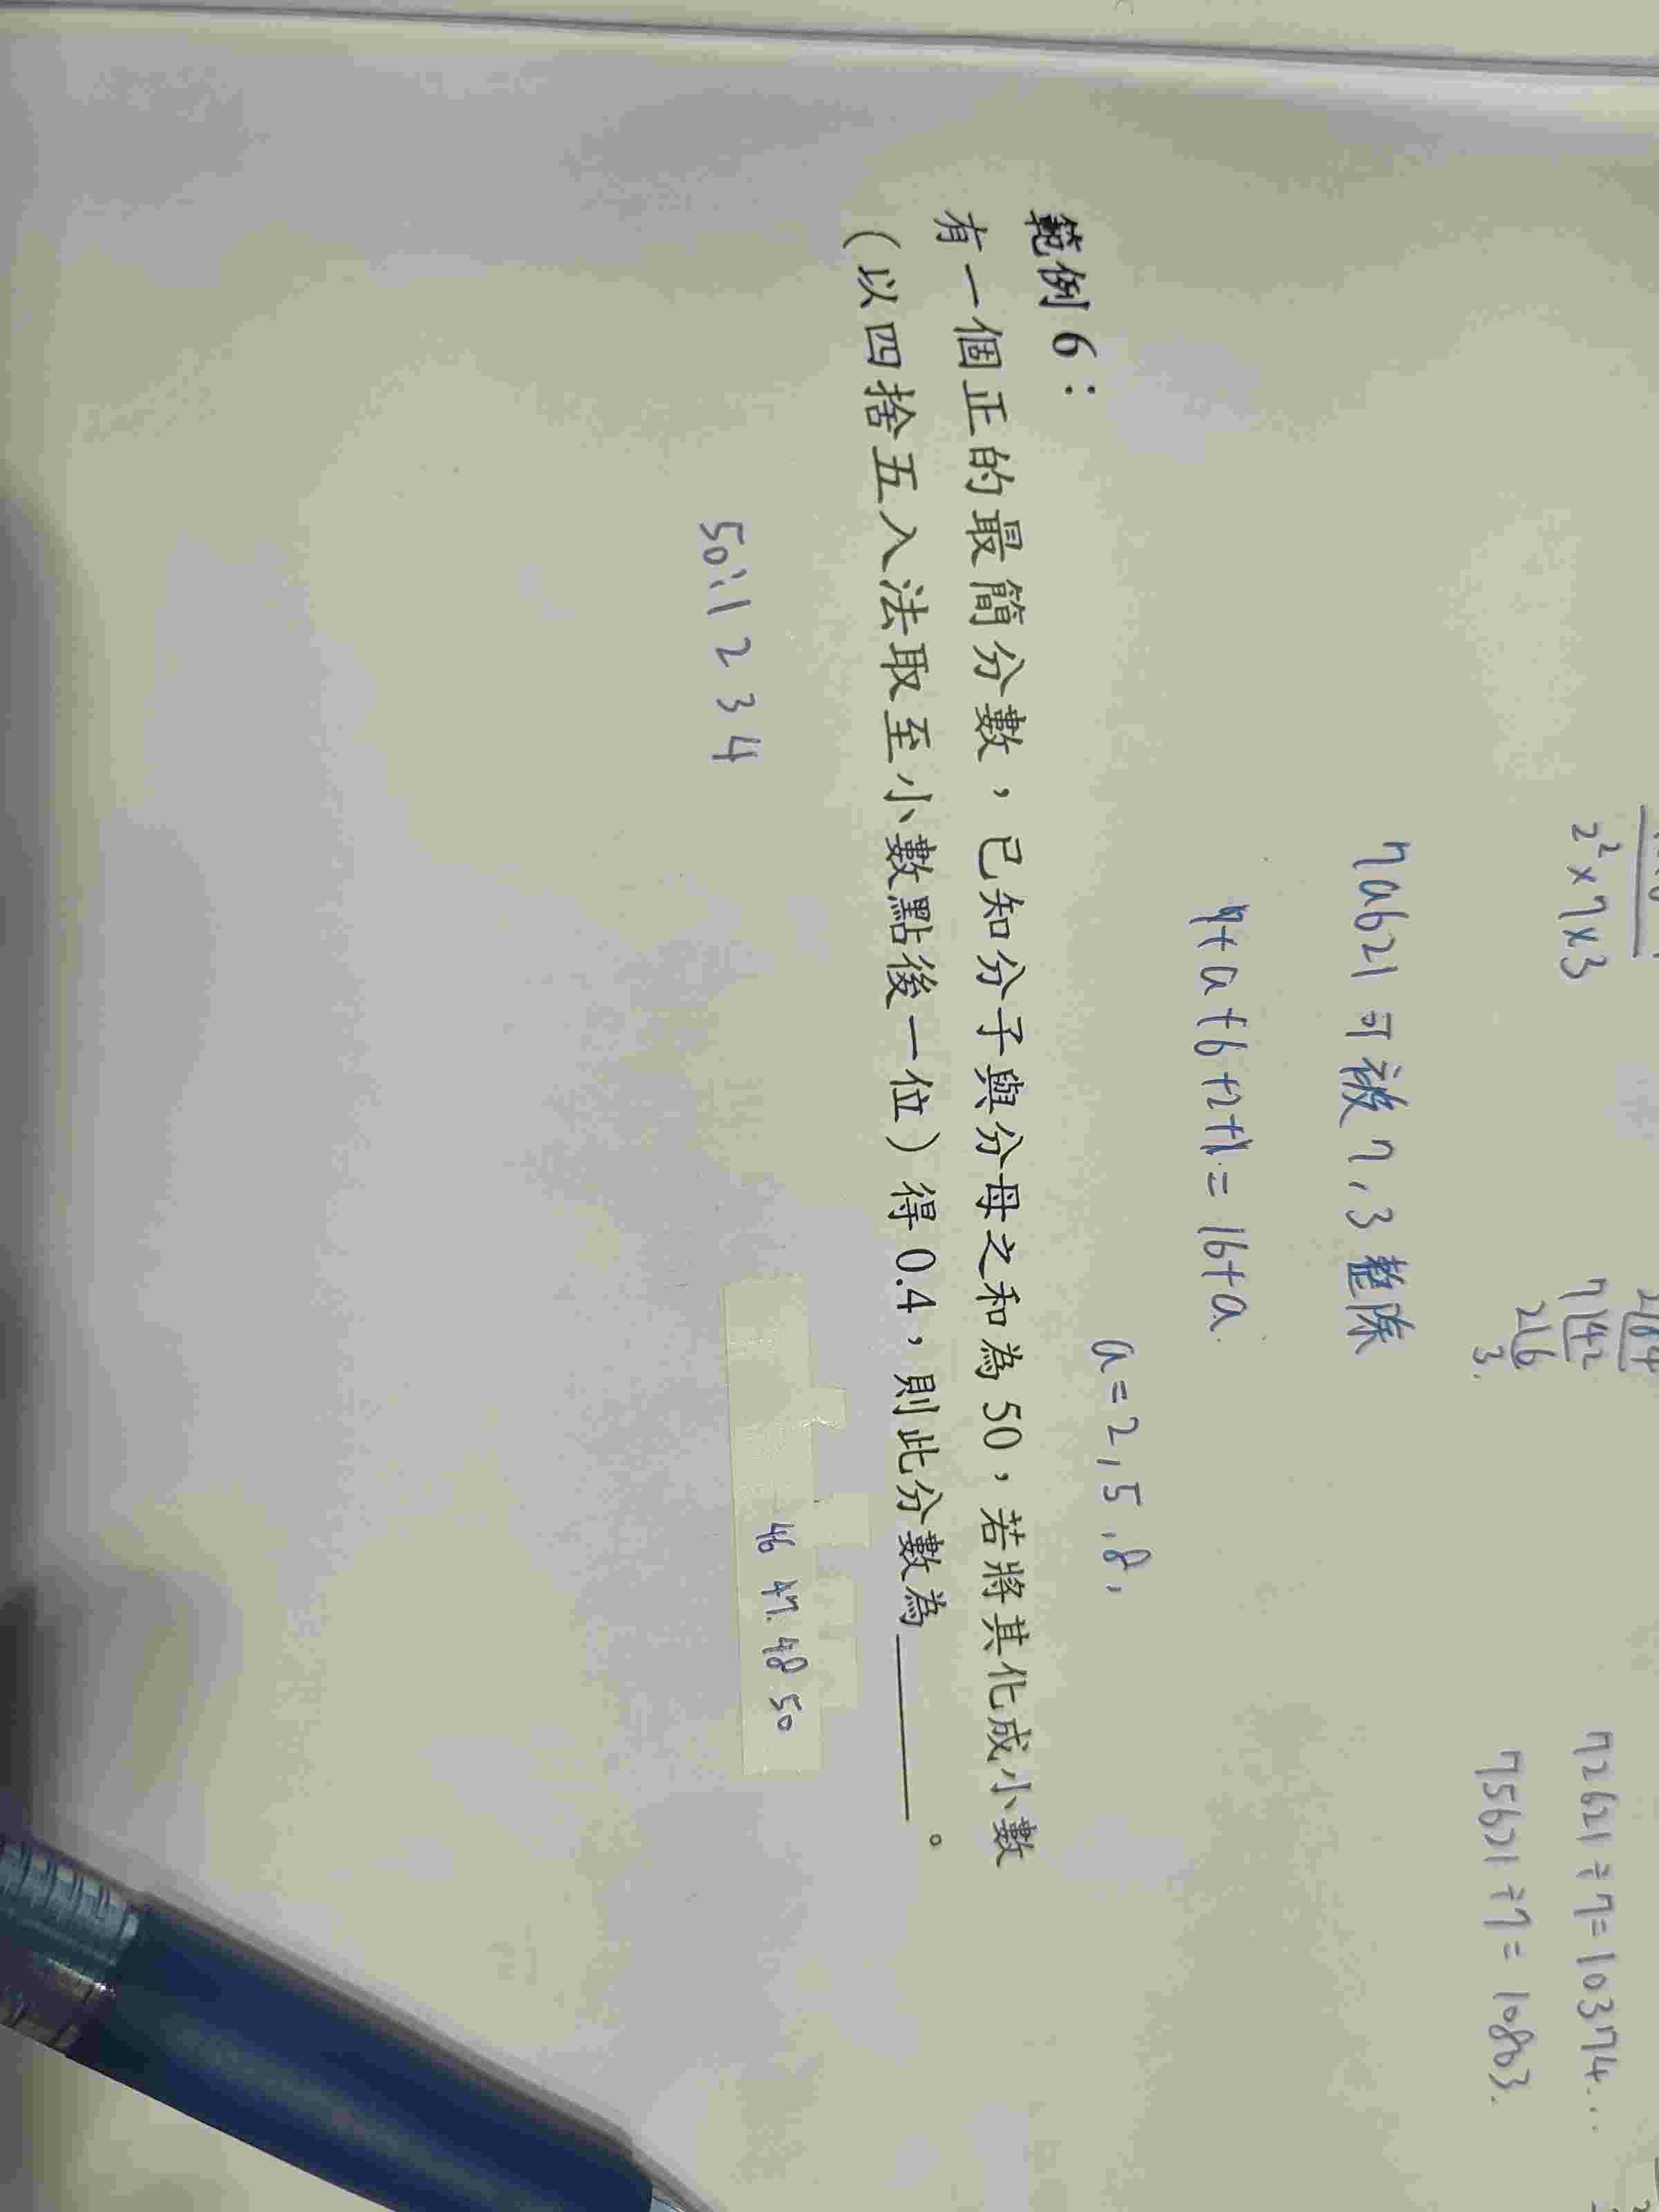 2²×7×3
2|84
7|42
2|6
3.
72621÷7=10374...
75621÷7=10803.
7a621可被7,3整除
7+a+6+2+1=16+a.
a=2,5,8,
範例6：
有一個正的最簡分數，已知分子與分母之和為50，若將其化成小數
（以四捨五入法取至小數點後一位）得0.4，則此分數為______。
50:1 2 3 4
46 47. 48 50